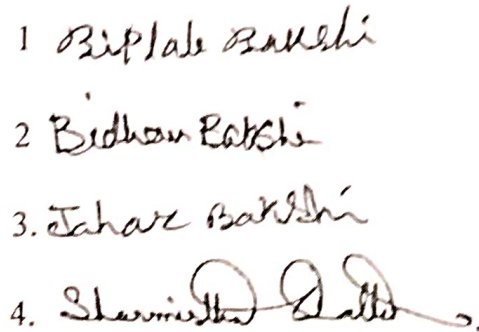 1 Biplab Bakshi
2 Bidhan Bakshi
3. Jahar Bakshi
4. Sharmistha